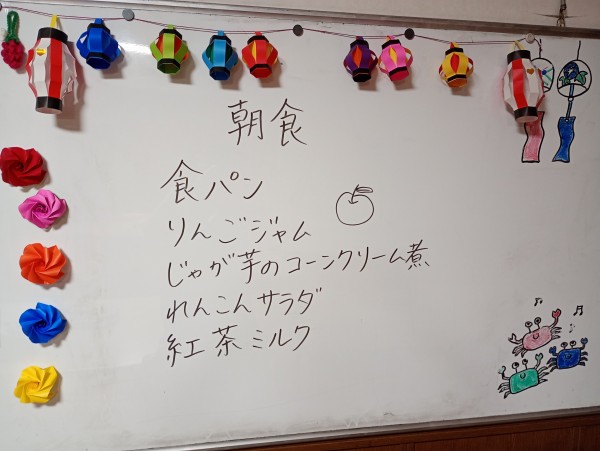 朝食
食パン
りんごジャム
じゃが芋のコーンクリーム煮
れんこんサラダ
紅茶ミルク